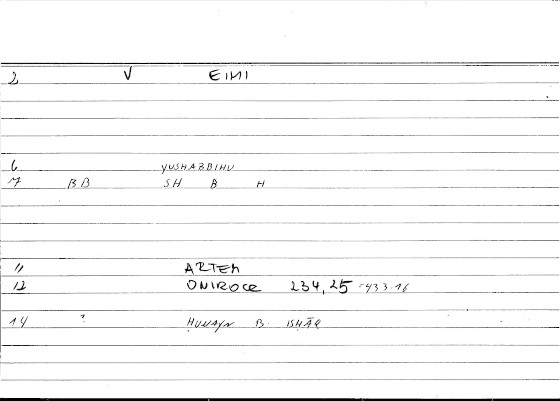 2 V EIMI
6 YUSHABBIHU
7 BB SH B H
11 ARTEM
12 ONIROCR 234,25 -433.16
14 ḤUNAYN B. ISḤĀQ